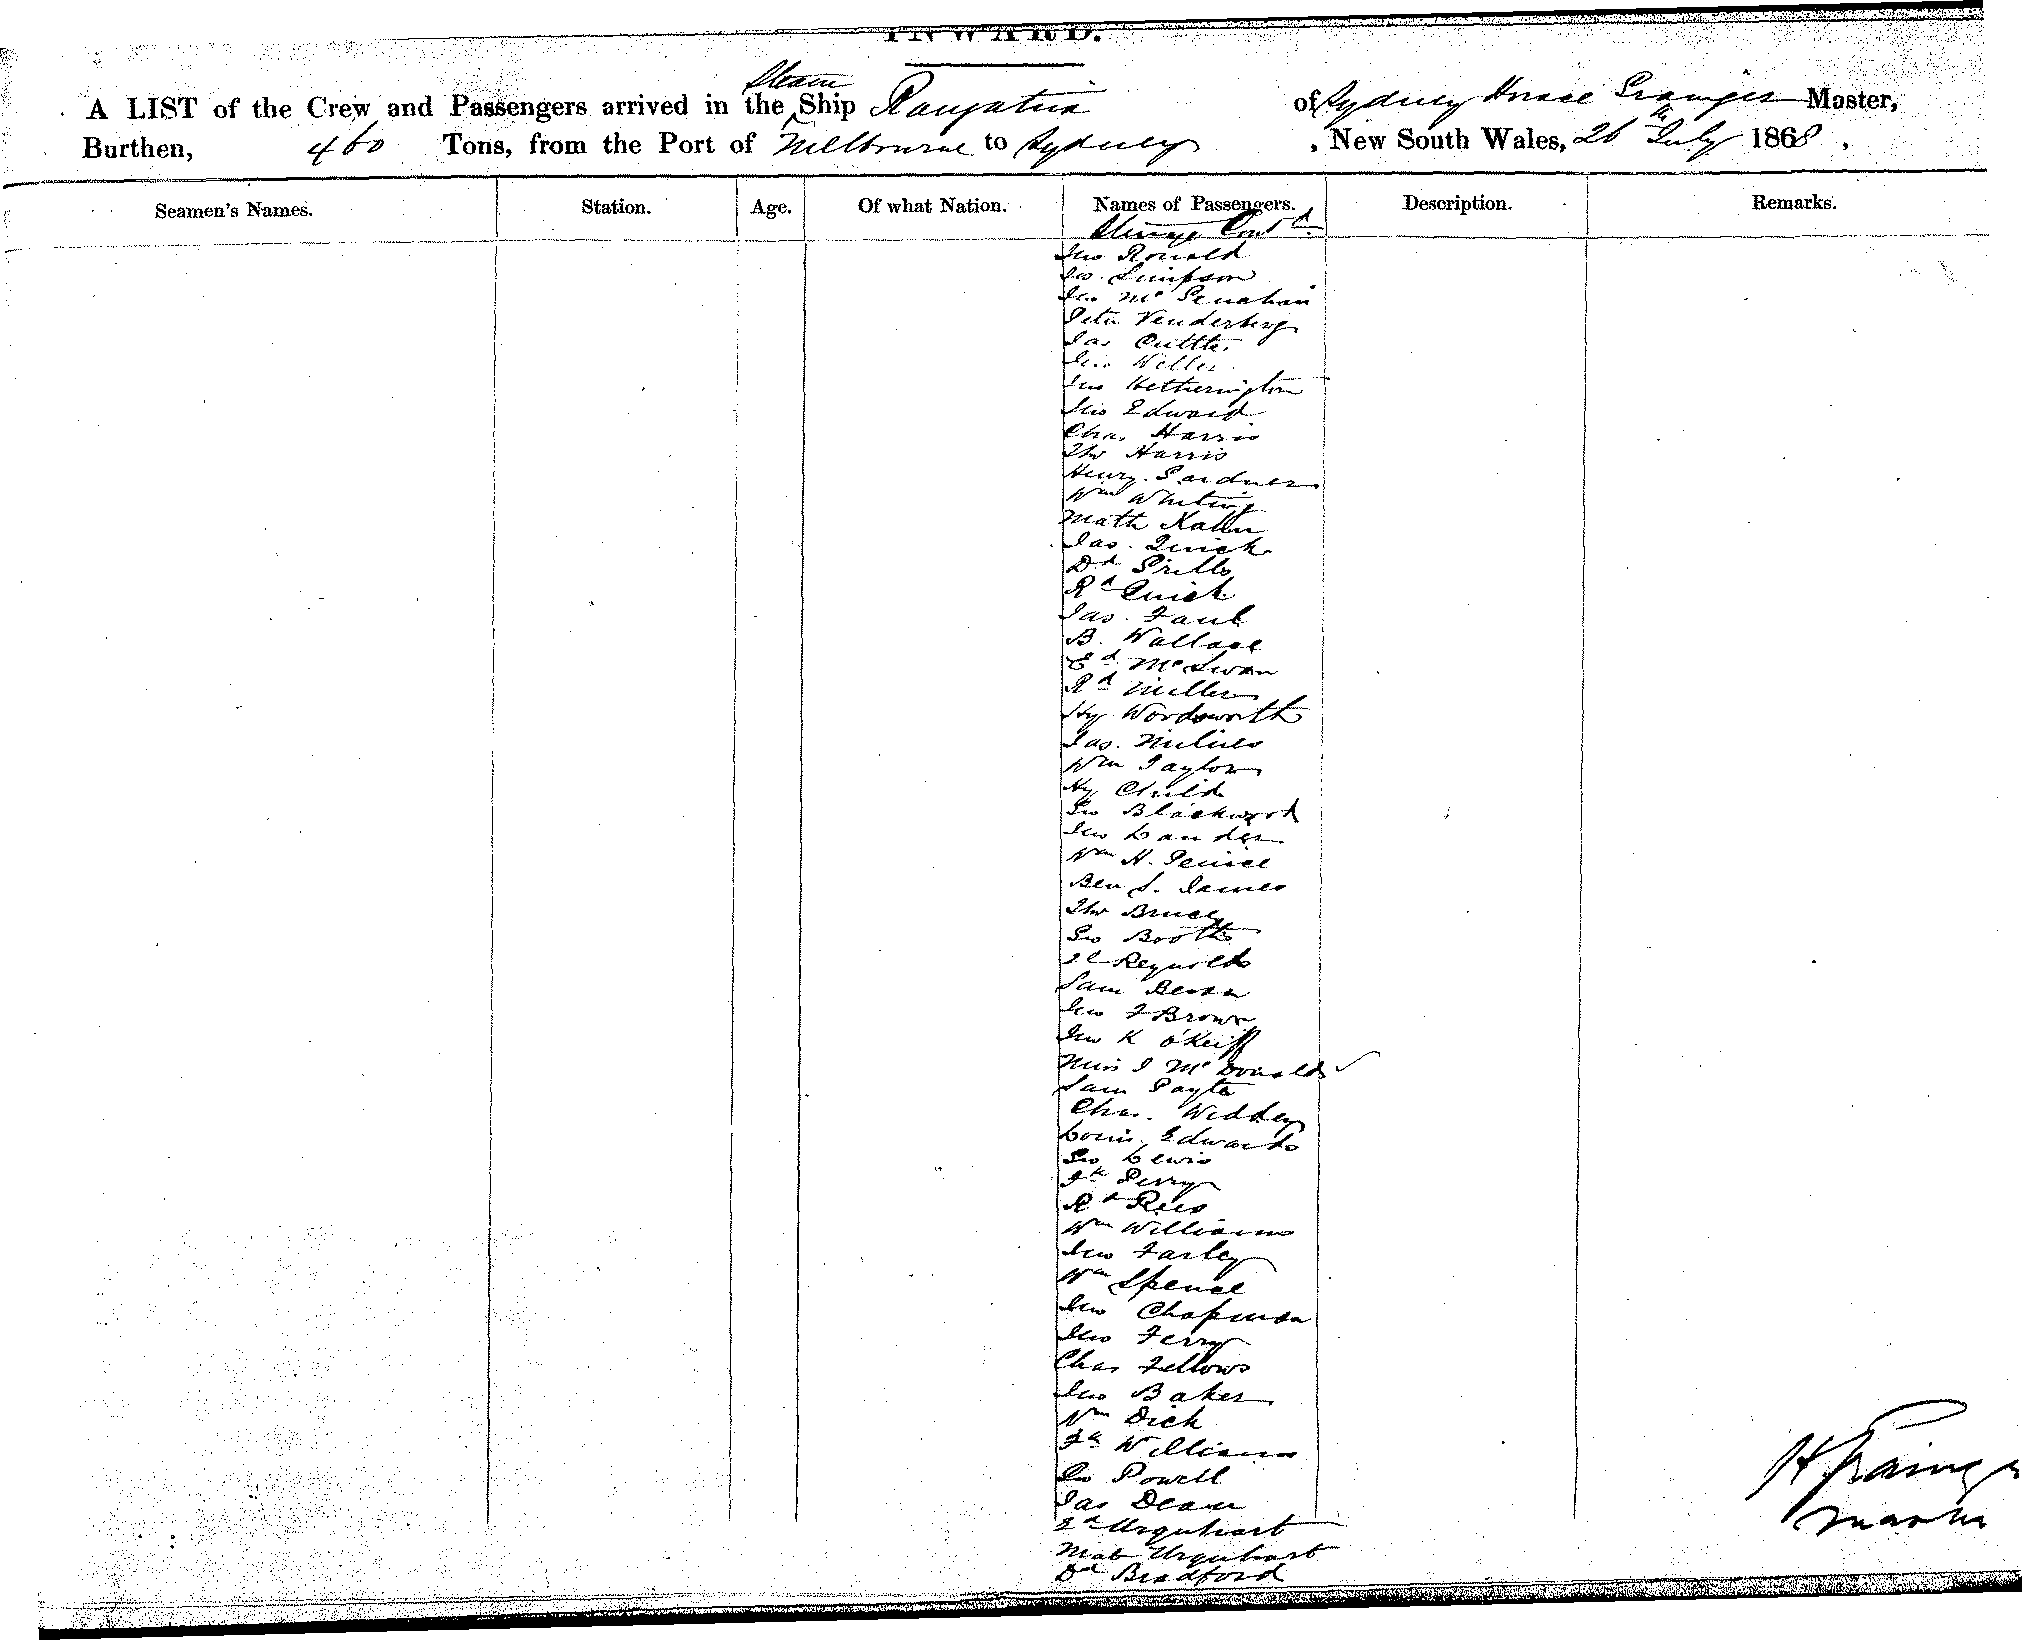 INWARD.
A LIST of the Crew and Passengers arrived in the Steam Ship Rangatira of Sydney Horace Grainger Master,
Burthen, 460 Tons, from the Port of Melbourne to Sydney, New South Wales, 26th July 1868.
Seamen's Names. Station. Age. Of what Nation. Names of Passengers. Description. Remarks.
Steerage Contd
Jno Ronald
Jos. Simpson
Jno Mc
Peter Venderberg
Jas
Jno Weller
Jno Hetherington
Jno Edward
Chas Harris
Tho Harris
Henry Gardner
Wm Whiting
Math
Jas. Quick
Dd
Rd Quick
Jas.
B. Wallace
Ed McSwan
Rd Miller
Hy Wordsworth
Jas. Milnes
Wm Taylor
Hy Child
Geo Blackwood
Jno Lander
Wm H.
Ben S. James
Tho Bruce
Geo Booth
Reynolds
Sam
Jno F Brown
Jno K O'Keiff
Miss J McDonald
Sam
Chas. Widdey
Louis Edwards
Geo Lewis
Perry
Rd Rees
Wm Williams
Jno Farley
Wm Spence
Jno Chapman
Jno Ferry
Chas Fellows
Jno Baker
Wm Dick
Williams
Geo Powell
Jas
Urquhart
Urquhart
Dd Bradford
H Grainger
Master